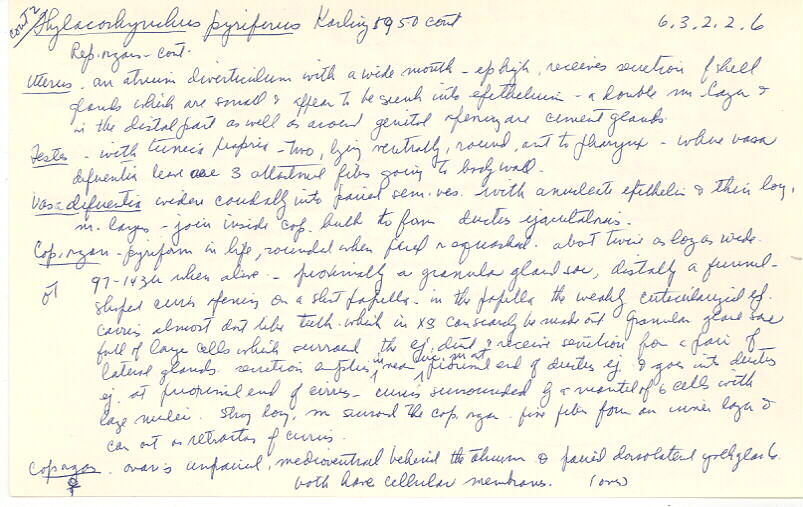 cont 2 Thylacorhynchus pyriferus Karling 1950 cont 6.3.2.2.6
Rep. organs - cont.
Uterus - an atrium diverticulum with a wide mouth - ep high, receives secretion of shell
glands which are small & appear to be sunk into epithelium - a double m. layer &
in the distal part as well as around genital opening are cement glands.
Testes - with tunica propria - two, lying ventrally, round, ant to pharynx - where vasa
deferentia leave are 3 attachment fibers going to body wall.
Vasa deferentia widen caudally into paired sem. ves. with anucleate epithelia & thin long.
m. layers - join inside cop. bulb to form ductus ejaculatorius.
Cop. organ - pyriform in life, rounded when fixed or squashed. about twice as long as wide.
♂ 97-143µ when alive - proximally a granular gland sac, distally a funnel-
shaped cirrus opening on a short papilla - in the papilla the weakly cuticularized ej.
carries almost dont like teeth which in XS can scarcely be made out. Granular gland sac
full of large cells which surround the ej. duct & receive secretion from a pair of
lateral glands. secretion empties near proximal end of ductus ej. & goes into ductus
ej. at proximal end of cirrus - cirrus surrounded by a mantel of 6 cells with
large nuclei. Strong long. m surround the cop. organ. fine fibers form an inner layer &
can act as retractors of cirrus.
Cop organ ♀ - ovaries unpaired, medioventral behind the atrium & paired dorsolateral yolk glands.
both have cellular membranes. (over)